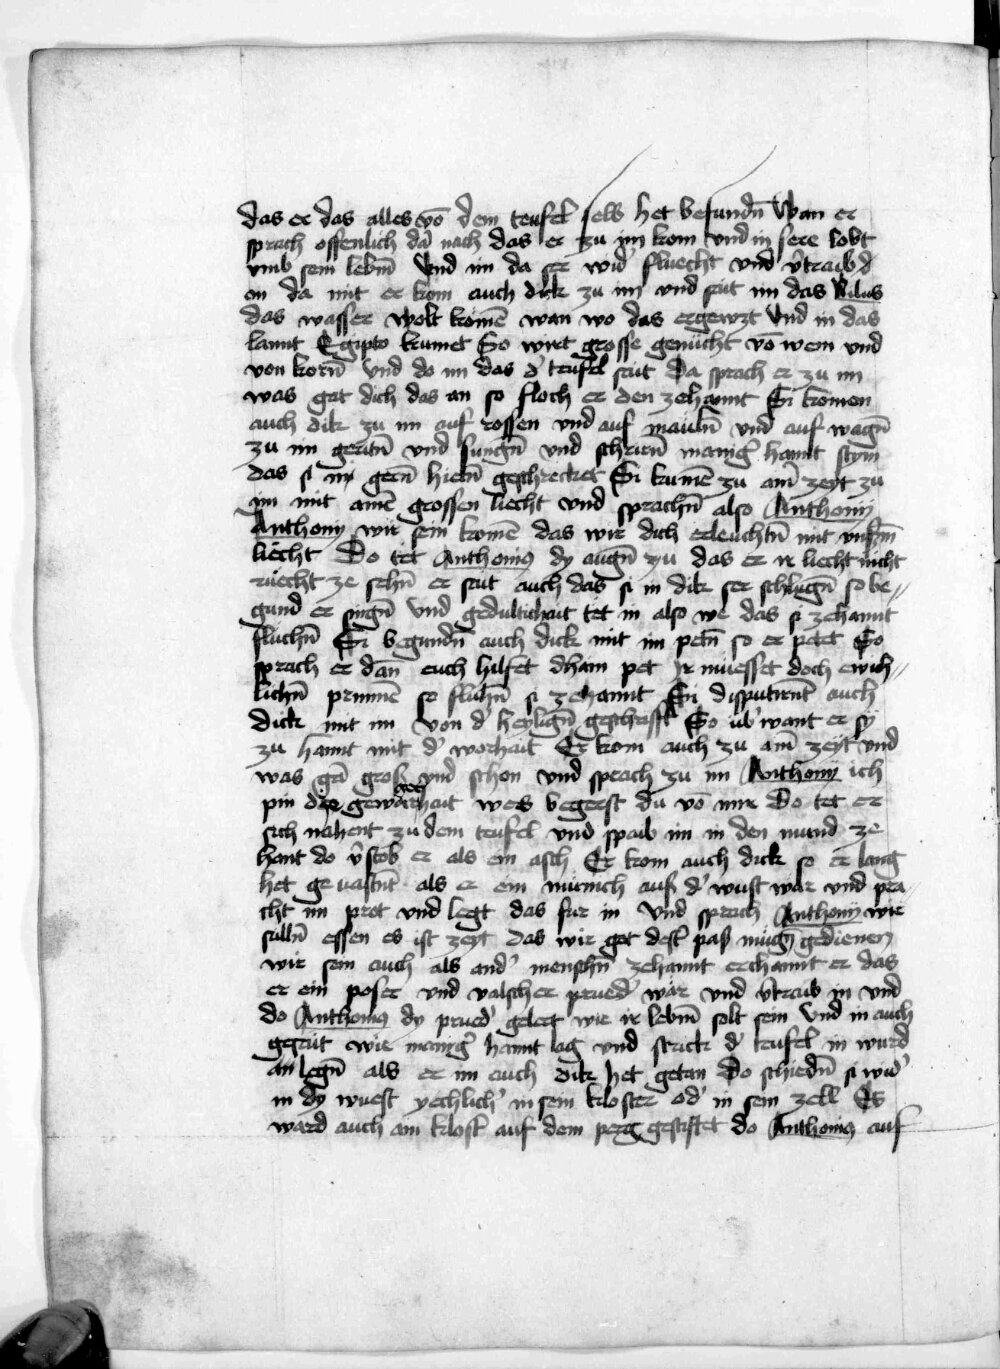 das er das alles vō dem teufel selb het befundn̄ Wan er
sprach offenlich dā nach das er zu im kom vnd in sere lobt
vmb sein lebm̄ Vnd im da ser wid' fluecht vnd v̄traib d
en da mit er kom auch dick zu im vnd seit im das Nilus
das wasser wolt komē wan wo das ergewzt Vnd in das
lannt Egipto kumet So wirt grosse genucht vō wein vnd
von korn̄ Vnd do im das d' teufel seit Da sprach er zu im
was get dich das an so floch er den zehannt Si komen
auch dik zu im auf rossen vnd auf mauln̄ vnd auf wagn̄
zu im geritn̄ vnd sungn̄ vnd schrirn̄ manig' hannt stym
das si in gern̄ hietn̄ geschrecket Si kumē zu ainē zeyt zu
im mit ainē grossen liecht vnd sprachn̄ also Anthony
Anthony wir sein komē das wir dich erleuchtn̄ mit vnsm̄
liecht Do tet Anthonius dy augn̄ zu das er ir liecht nicht
ruecht ze sehn̄ er seit auch das si in dik ser schlugn̄ so be-
gund er singn̄ Vnd gedultichait tet in also we das si zehannt
fluchn̄ Si begundn̄ auch dick mit im petn̄ so er petet So
sprach er dan̄ euch hilfet dhain pet Ir muesset doch ewich-
lichn̄ prinnē so fluhn̄ si zehannt Si disputirnt auch
dick mit im von d' heylign̄ geschrifft So ub'want er sy
zu hannt mit d' worhait Er kom auch zu ainē zeyt vnd
was gā gross vnd schon vnd sprach zu im Anthony ich
pin die gewarhait wes begerst du vō mir Do tet er
sich nahent zu dem teufel vnd spaib im in den mund ze
hant do v̄stob er als ein asch Er kom auch dick so er lang
het geuastnt als er ein münich auss d' wust wär vnd pra-
cht im prot vnd legt das fur in Vnd sprach Anthony wir
sulln̄ essen es ist zeyt das wir got dest pass mugn̄ gedienen
wir sein auch als and' menschn̄ zehannt erchannt er das
er ein poser vnd valscher prued' wär vnd v̄traib in vnd
do Anthonius dy prued' gelert wie ir lebm̄ solt sein Vnd in auch
geseit wie manig' hannt lag vnd strick d' teufel in wurd
an legn̄ als er im auch dik het getan Do schiedn̄ si wid'
in dy wuest yechlich' in sein kloster od' in sein zell Es
ward auch ain klost' auf dem perg gestiftet do Anthonius auf